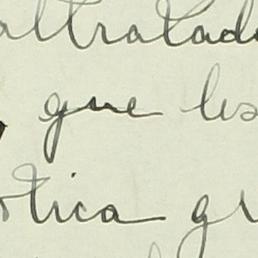 altratad
que les
tica gr